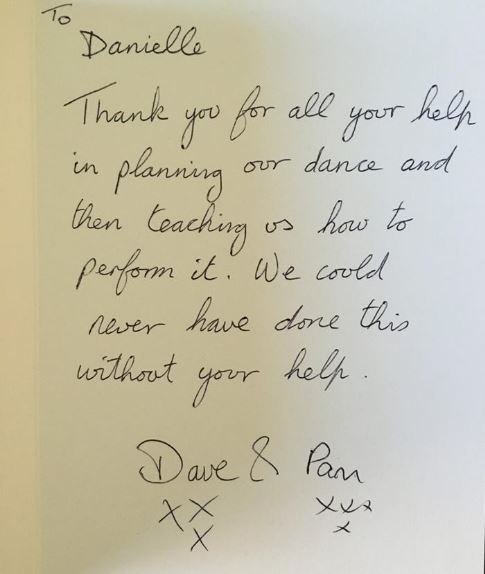 To
Danielle
Thank you for all your help
in planning our dance and
then teaching us how to
perform it. We could
never have done this
without your help.
Dave & Pam
xx xxx
x x